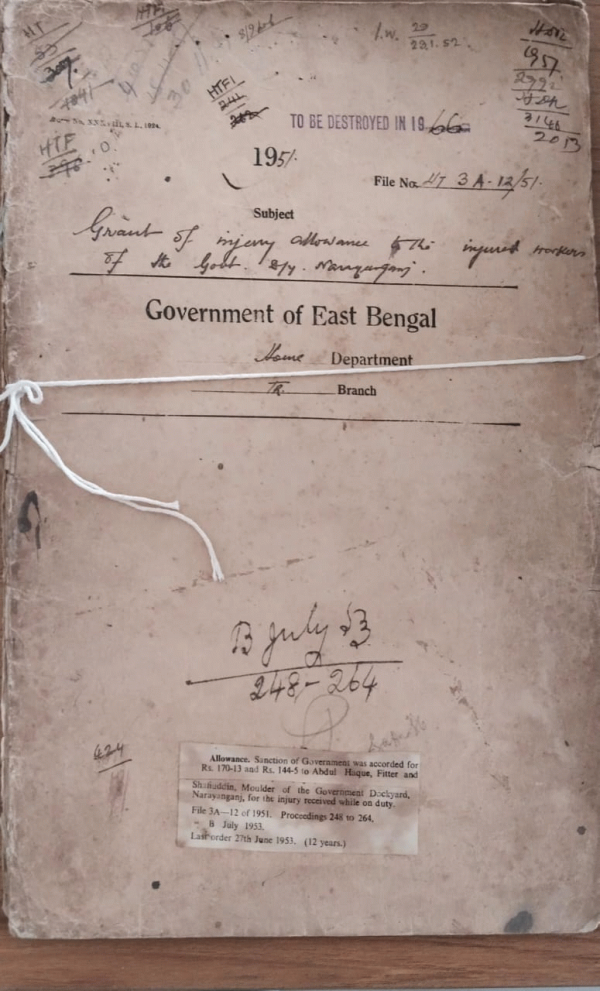 HT
307
1041
HTF
HTF1
241
I.W. 29
29.1.52.
Hom
1957
2992
3146
2013
TO BE DESTROYED IN 19 66
1951.
File No. HT 3 A-12/51.
Subject
Grant of injury allowance to the injured workers
of the Govt. D/y. Narayanganj.
Government of East Bengal
Home Department
Branch
B July 53
248-264
424
Allowance. Sanction of Government was accorded for
Rs. 170-13 and Rs. 144-5 to Abdul Haque, Fitter and
Shafiuddin, Moulder of the Government Dockyard,
Narayanganj, for the injury received while on duty.
File 3A—12 of 1951. Proceedings 248 to 264,
" B July 1953.
Last order 27th June 1953. (12 years.)